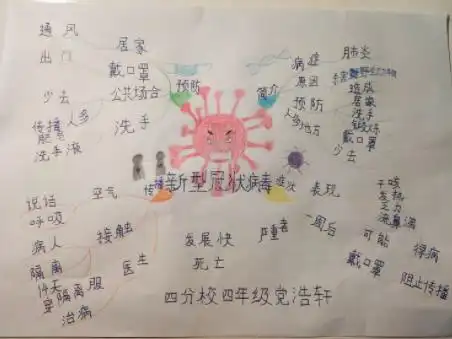 通风
出门
居家
戴口罩
预防
少去
公共场合
人多
传播
洗手
洗手液
病症
肺炎
简介
原因
预防
造成
居家
洗手
锻炼
戴口罩
人多地方
少去
新型冠状病毒
传播
说话
呼吸
空气
病人
接触
隔离
14天
医生
穿隔离服
治病
症状
表现
干咳
发热
乏力
流鼻涕
一周后
严重者
发展快
死亡
可能
得病
戴口罩
阻止传播
四分校四年级党浩轩